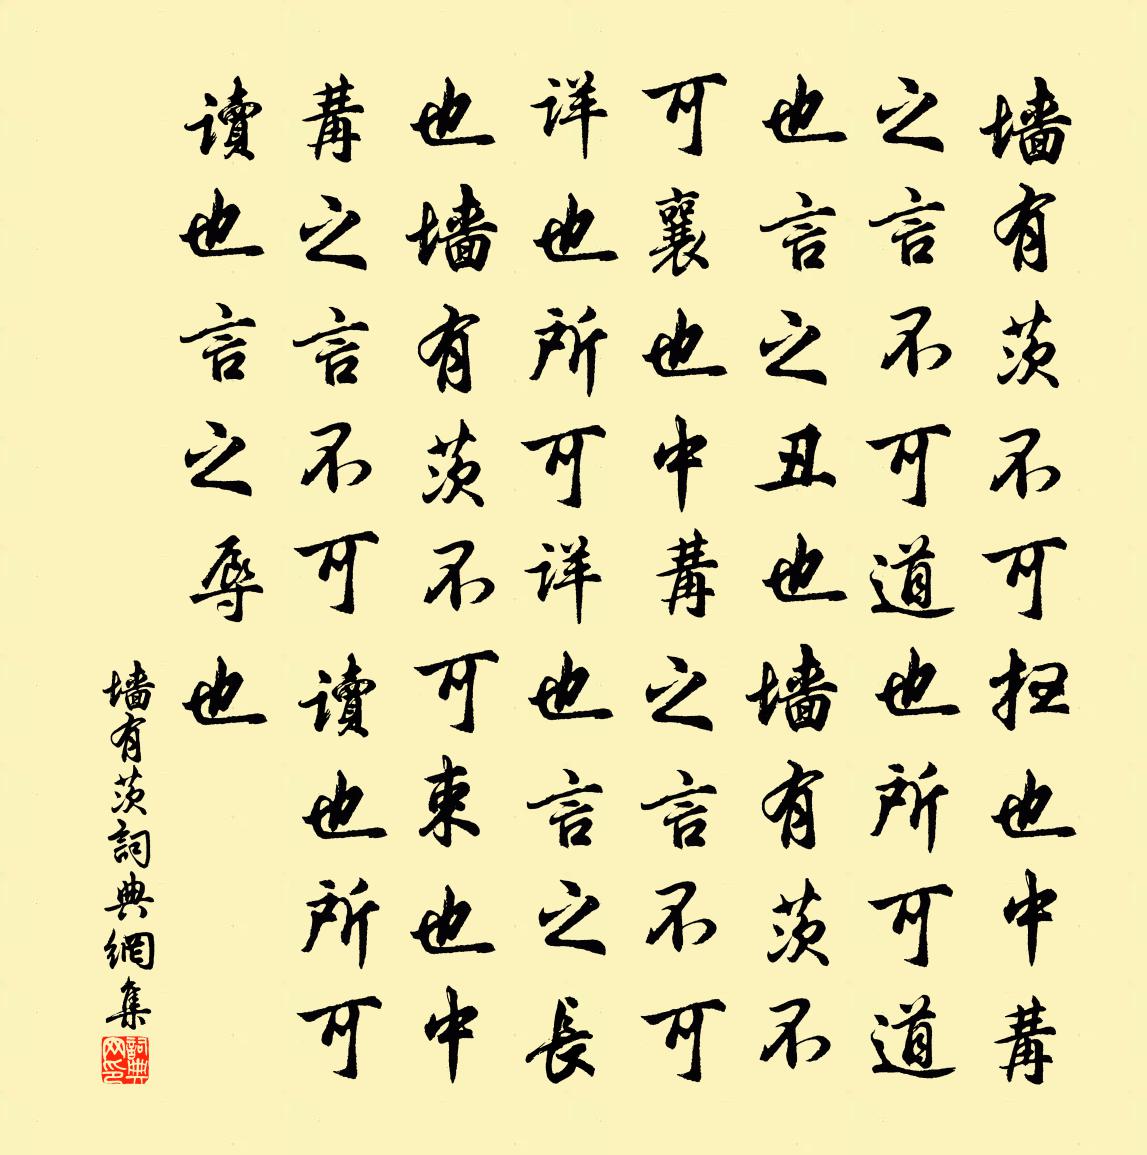 墙有茨不可扫也中冓
之言不可道也所可道
也言之丑也墙有茨不
可襄也中冓之言不可
详也所可详也言之長
也墙有茨不可束也中
冓之言不可讀也所可
讀也言之辱也
墙有茨詞典網集
詞典网印